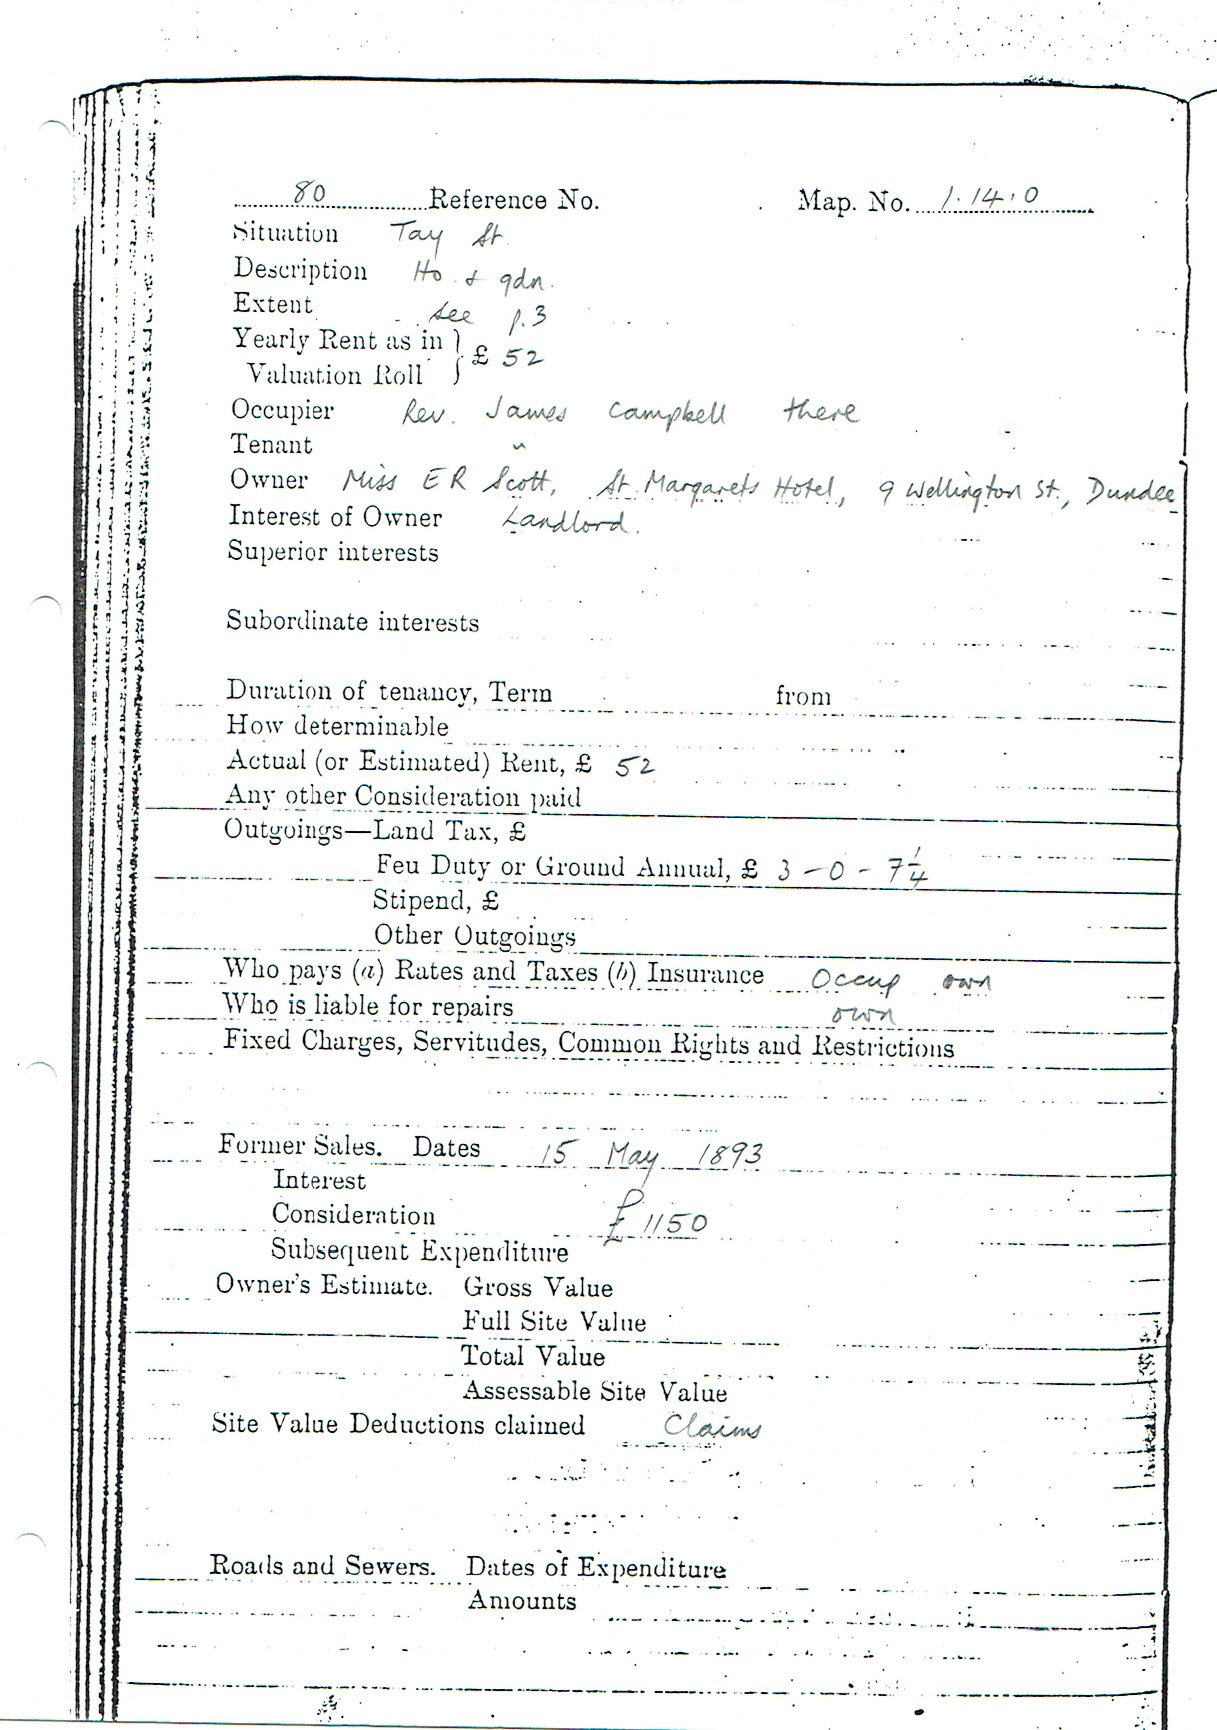 80 Reference No. Map. No. 1.14.0
Situation Tay St
Description Ho & gdn.
Extent See p.3
Yearly Rent as in } £ 52
Valuation Roll
Occupier Rev. James Campbell there
Tenant "
Owner Miss E R Scott, St Margarets Hotel, 9 Wellington St., Dundee
Interest of Owner Landlord.
Superior interests
Subordinate interests
Duration of tenancy, Term from
How determinable
Actual (or Estimated) Rent, £ 52
Any other Consideration paid
Outgoings—Land Tax, £
Feu Duty or Ground Annual, £ 3 - 0 - 7 1/4
Stipend, £
Other Outgoings
Who pays (a) Rates and Taxes (b) Insurance Occup own
Who is liable for repairs own
Fixed Charges, Servitudes, Common Rights and Restrictions
Former Sales. Dates 15 May 1893
Interest
Consideration £1150
Subsequent Expenditure
Owner's Estimate. Gross Value
Full Site Value
Total Value
Assessable Site Value
Site Value Deductions claimed Claims
Roads and Sewers. Dates of Expenditure
Amounts